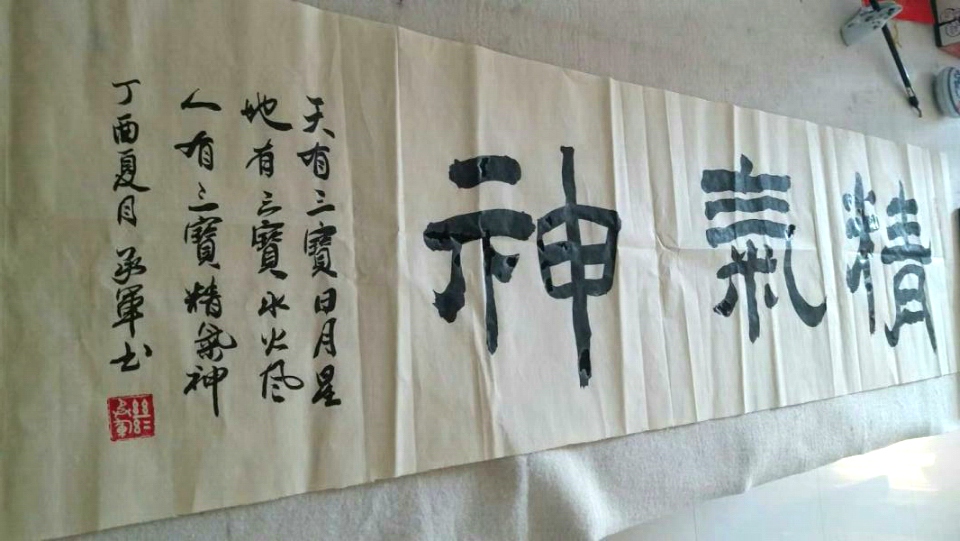 精氣神
天有三寶日月星
地有三寶水火风
人有三寶精氣神
丁酉夏月承軍书